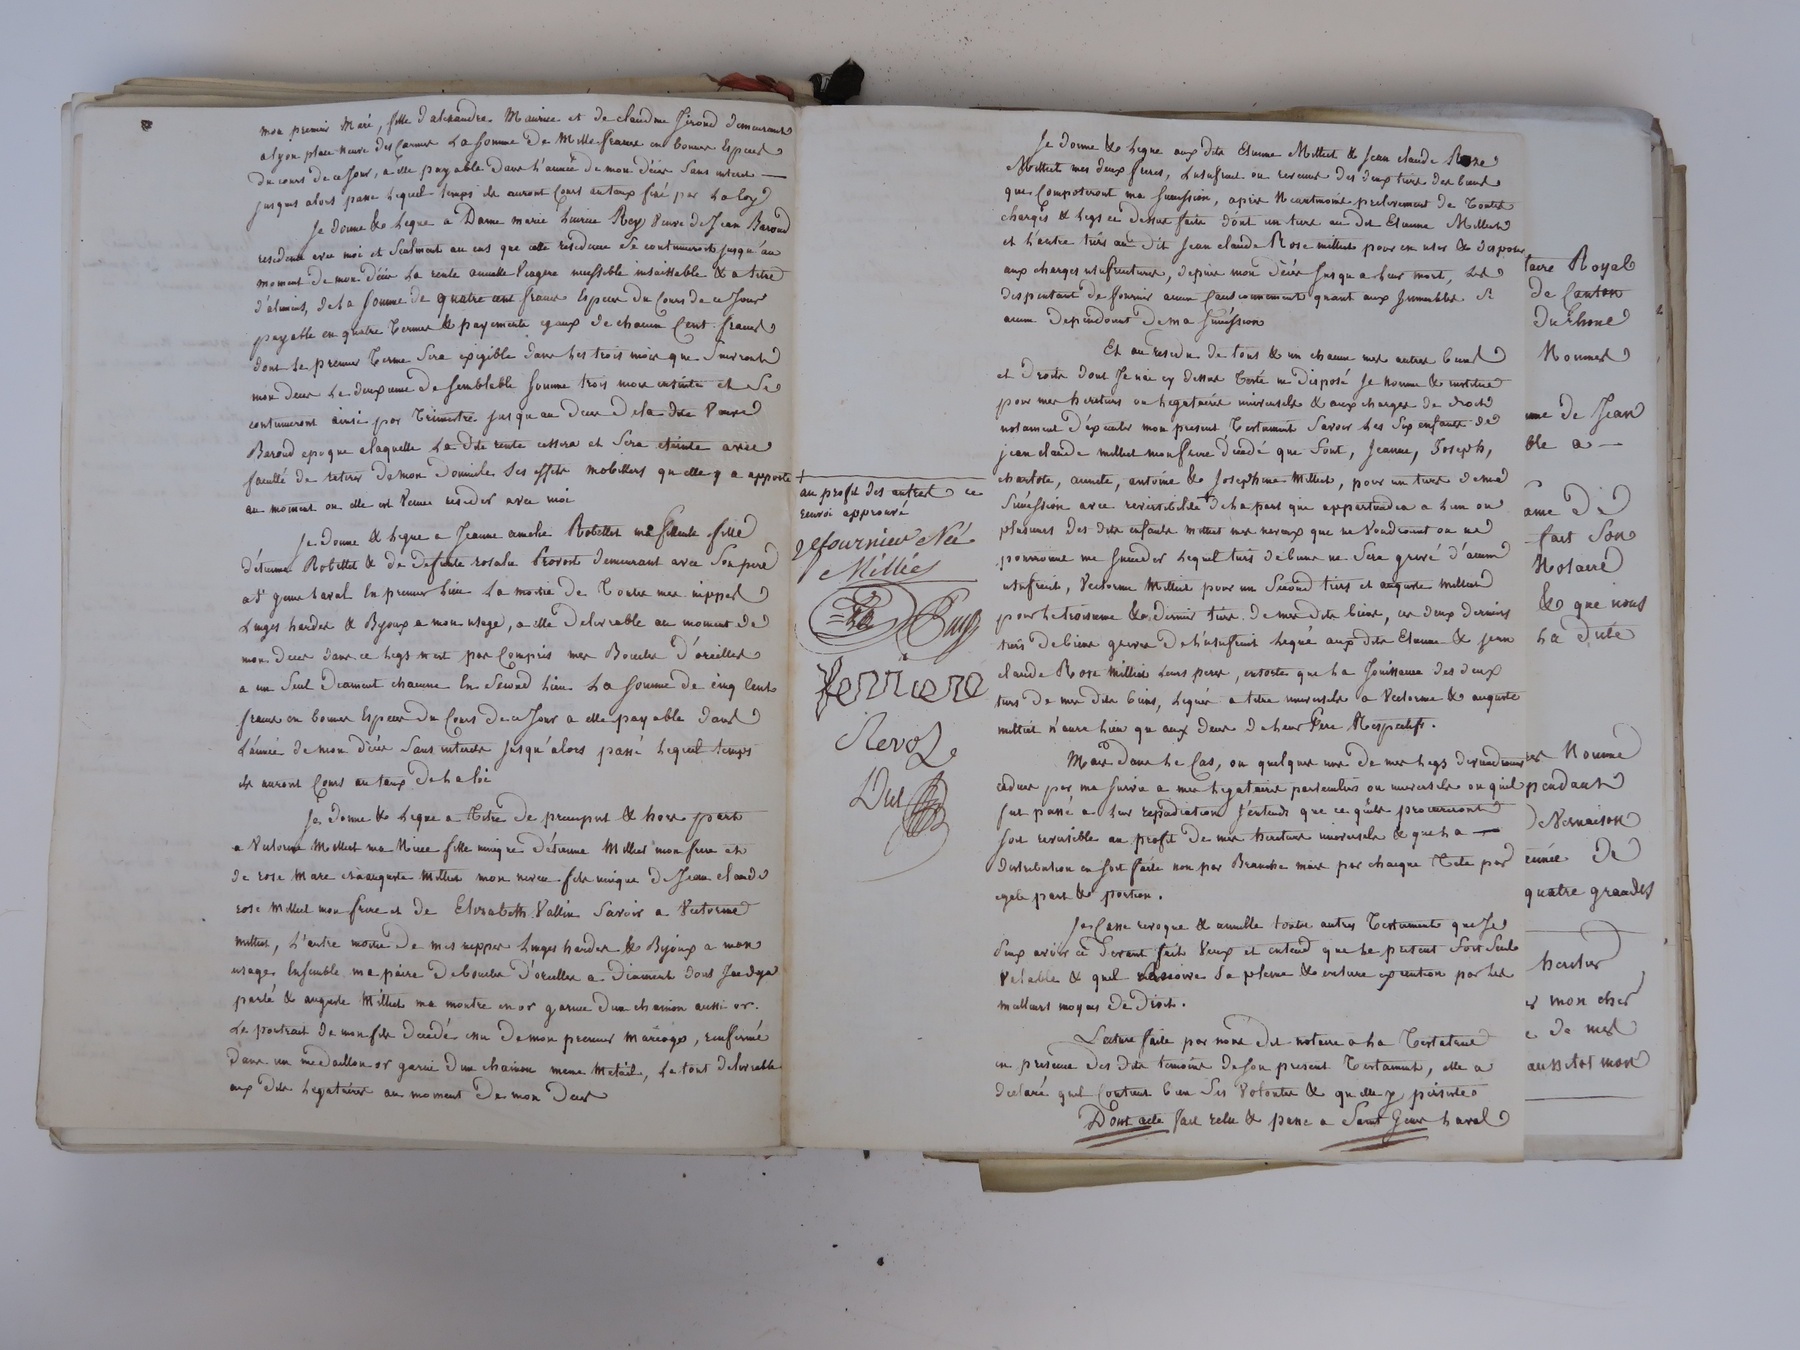 mon premier Maré, fille d'alexandre Maurice et de claudine Giroud demeurant
a lyon place neuve des Carmes La Somme De Mille francs en bonnes Espèces
du cours de ce Jour, a elle payable Dans L'année de mon décès Sans intérêt —
jusques alors passé Lequel temps ils auront Cours au taux fixé par La loy
Je donne & Legue a Dame marie Rey Veuve de Jean Baroud
residente avec moi et Seulement au cas que cette residence Se continueroit jusqu'au
moment de mon décès La rente annuelle Viagère incessible insaisissable & a titre
d'aliments, de La Somme de quatre cent francs Espèces Du Cours de ce Jour
payable en quatre Termes & payements egaux de chacun Cent francs
dont Le premier Terme Sera exigible dans Les trois mois que Suivront
mon deces Le deuxieme de Semblable Somme trois mois ensuite et Se
continueront ainsi par Trimestre jusqu'au deces de la dite Veuve
Baroud epoque a laquelle La dite rente cessera et Sera eteinte avec
faculté de retirer de mon Domicile Ses effets mobiliers qu'elle y a apporté
au moment ou elle est Venue resider avec moi
Je donne & Legue a Jeanne amelie Robellet ma filleule fille
d'étienne Robellet & de Defunte rosalie Provost demeurant avec Son pere
a St genis laval En premier Lieu La moitié de Toutes mes nippes
Linges hardes & Byoux a mon usage, a elle delivrable au moment de
mon deces dans ce Legs n'est pas Compris mes Boucles d'oreilles
a un Seul Diamant chacune En Second Lieu La Somme de cinq Cents
francs en bonnes Espèces Du Cours de ce Jour a elle payable dans
L'année de mon décès Sans interets jusqu'alors passé Lequel temps
ils auront Cours au taux de la loi
Je donne & Legue a Titre de preciput & hors part
a Victorine Milliet ma Niece fille unique d'étienne Milliet mon frere et
de rose Mare et a auguste Milliet mon neveu fils unique de Jean claude
rose Milliet mon frere et de Elizabeth Vallin Savoir a Victorine
milliet, L'autre moitié De mes nippes Linges hardes & Byoux a mon
usage Ensemble ma paire De boucles D'oreilles a Diamant dont J'ai deja
parlé & auguste Milliet ma montre en or garnie d'un chainon aussi or.
Le portrait de mon fils décédé issu de mon premier mariage, renfermé
dans un medaillon or garni d'un chainon meme Metail, Le tout delivrable
aux dits Legataires au moment De mon Deces
au profit des autres ce
renvoi approuvé
fournier Née
Milliet
Puy
ferriere
Revol
Je donne & Legue aux dits Etienne Milliet & Jean claude Rose
Milliet mes deux freres, L'usufruit ou revenus des deux tiers des biens
que Composeront ma Succession, après Neantmoins prelevement de Toutes
charges & Legs ci dessus faits dont un tiers au dit Etienne Milliet
et L'autre tiers au dit Jean claude Rose milliet pour en user & disposer
aux charges usufructuaires, depuis mon décès Jusqu'a Leur mort, Les
dispensant de fournir aucun Cautionnement quant aux Immeubles Si
aucun dependoient De ma Succession
Et au residu de tous & un chacuns mes autres biens
et Droits dont Je n'ai cy dessus Testé ni Disposé Je nomme & institue
pour mes heritiers ou Legataires universels & aux charges de droit
notament d'éxécuter mon present Testament Savoir Les Six enfants de
jean claude milliet mon frere décédé que Sont, Jeanne, Joseph,
charlote, annete, antoine & Josephine Milliet, pour un tiers de ma
Succession avec reversibilité + de la part que appartiendra a L'un ou
plusieurs des dits enfants milliet mes neveux que ne Voudroient ou ne
pourroient me Succeder Lequel tiers de biens ne Sera grevé d'aucun
usufruit, Victorine Milliet pour un Second tiers et auguste milliet
pour Le troisieme & dernier tiers de mes dits biens, ces deux derniers
tiers de biens grevés de L'usufruit Legué aux dits Etienne & jean
claude Rose Milliet Leurs peres, ensorte que La Jouissance des deux
tiers de mes dits biens, Legués a titre universels a Victorine & auguste
milliet n'aura Lieu qu'aux deces de Leur Pere Respectifs.
Mais dans Le Cas, ou quelques uns de mes Legs deviendroient
caducs par ma Survie a mes Legataires particuliers ou universels ou qu'il
fut passé a Leur repudiation J'entends que ce qu'ils procureront
Soit reversible au profit de mes heritiers universels & que La —
distribution en Soit faite non par Branche mais par chaque Tete par
egale part & portion.
Je Casse revoque & annulle toutes autres Testaments que Je
peux avoir ci Devant faits Veux et entend que Le present Soit Seul
Valable & qu'il recoive Sa pleine & entiere execution par Les
meilleurs moyens de Droit.
Lecture faite par nous Dit notaire a La Testatrice
en presence des dits temoins de Son present Testament, elle a
declaré qu'il Contient bien Ses Volontés & qu'elle y persiste
Dont acte fait relu & passé a Saint Genis Laval
taire Royal
de Canton
Du Rhone
Nommes
me de Jean
ble a —
ame De
fait Son
Notaire
& que nous
La dite
Nommé
pendant
De Vernaison
année De
quatre grandes
heritier
mon cher
de mes
aussitot mon